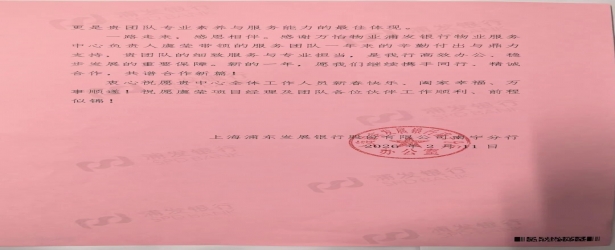 更是贵团队专业素养与服务能力的最佳体现。
一路走来，感恩相伴。感谢万怡物业浦发银行物业服务
中心负责人虞荣带领的服务团队一年来的辛勤付出与鼎力
支持。贵团队的细致服务与专业担当，是我行高效办公、稳
步发展的重要保障。新的一年，愿我们继续携手同行，精诚
合作，共谱合作新篇！
衷心祝愿贵中心全体工作人员新春快乐、阖家幸福、万
事顺遂！祝愿虞荣项目经理及团队各位伙伴工作顺利、前程
似锦！
上海浦东发展银行股份有限公司南宁分行
办公室
2026 年 2 月 11 日
浦发银行